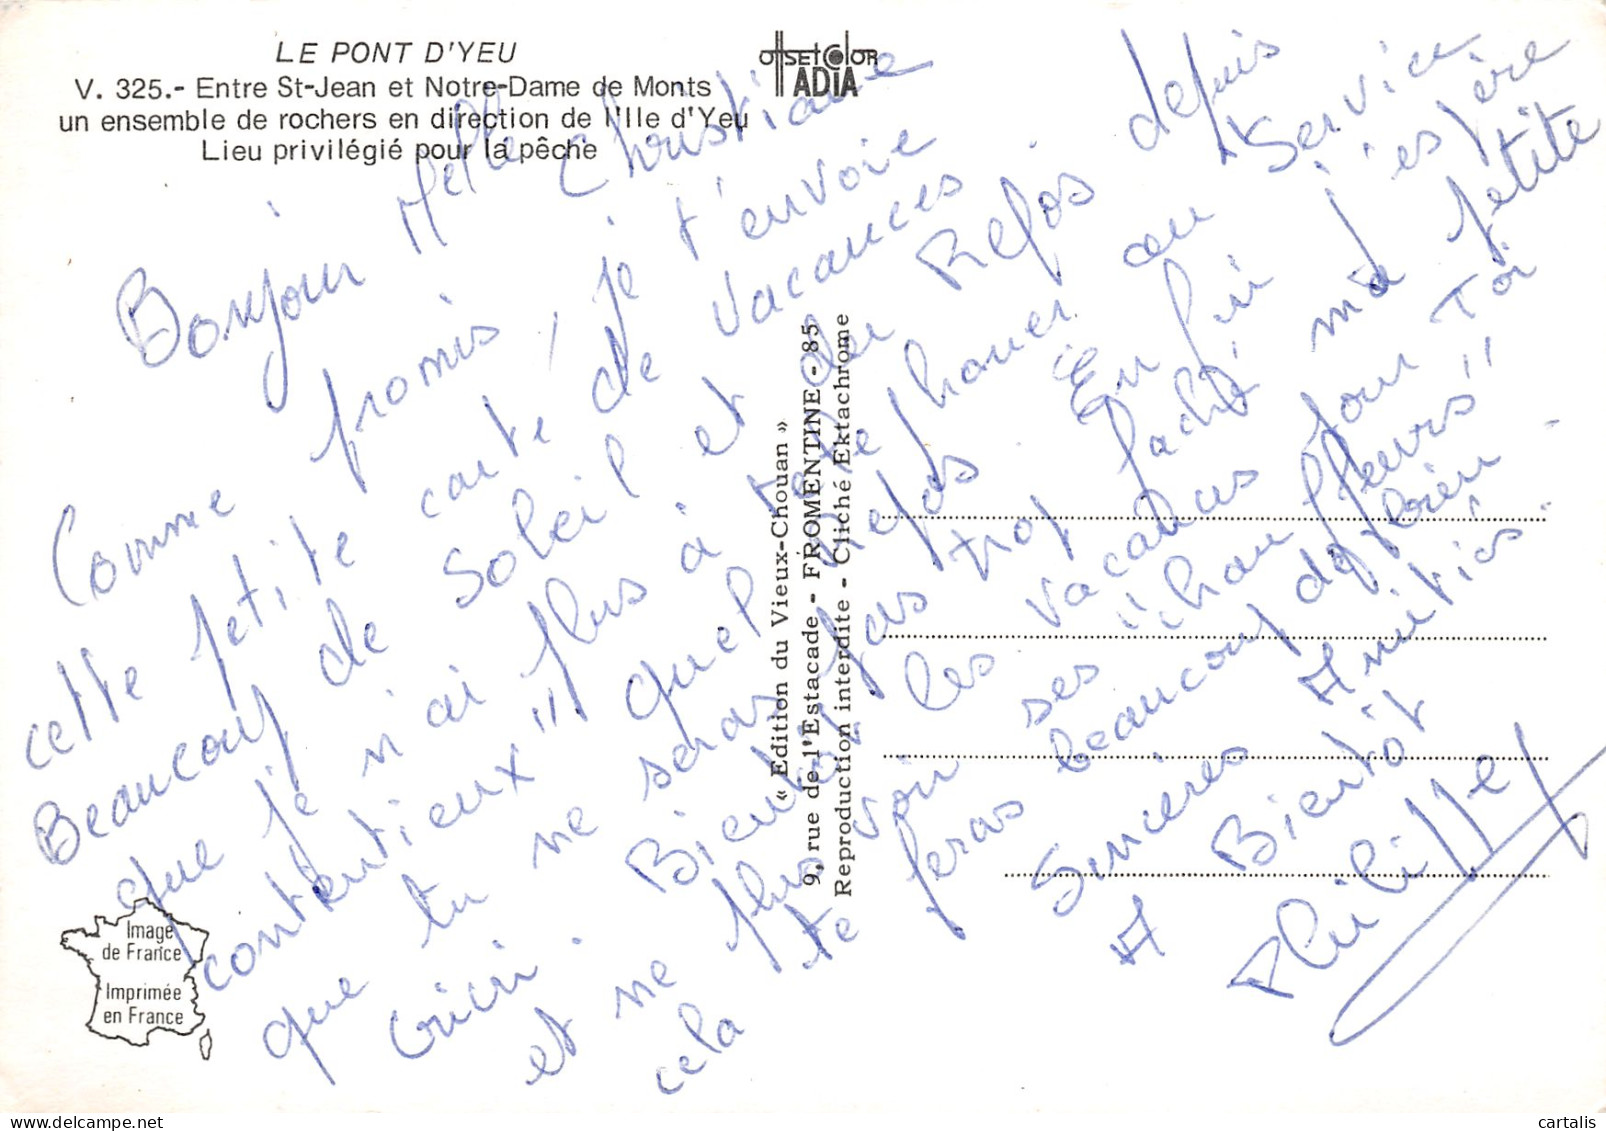 LE PONT D'YEU
V. 325.- Entre St-Jean et Notre-Dame de Monts
un ensemble de rochers en direction de l'Ile d'Yeu
Lieu privilégié pour la pêche
OffSET COLOR
ADIA
Bonjour Melle Christiane
Comme promis, je t'envoie
cette petite carte de vacances
Beaucoup de Soleil et de Repos depuis
que je n'ai plus à te
contentieux" quel Repos. Enfin j'espère
que tu ne seras pas trop faché ma petite
cricri. Bientôt les vacances pour Toi
et ne plus voir ses "chauffeurs"
cela te feras beaucoup de bien.
Sincères Amitiés.
A Bientôt
Philippe
« Edition du Vieux-Chouan »
9, rue de l'Estacade - FROMENTINE - 85
Reproduction interdite - Cliché Ektachrome
Image
de France
Imprimée
en France
cartalis